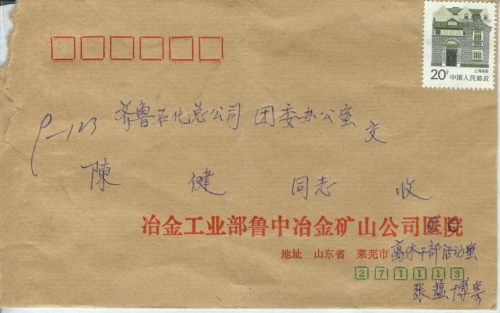 20分
上海民居
中国人民邮政
齐鲁石化总公司 团委办公室 交
陳 健 同志 收
冶金工业部鲁中冶金矿山公司医院
地址 山东省 莱芜市 离休干部活动室
271113
张蕴博寄